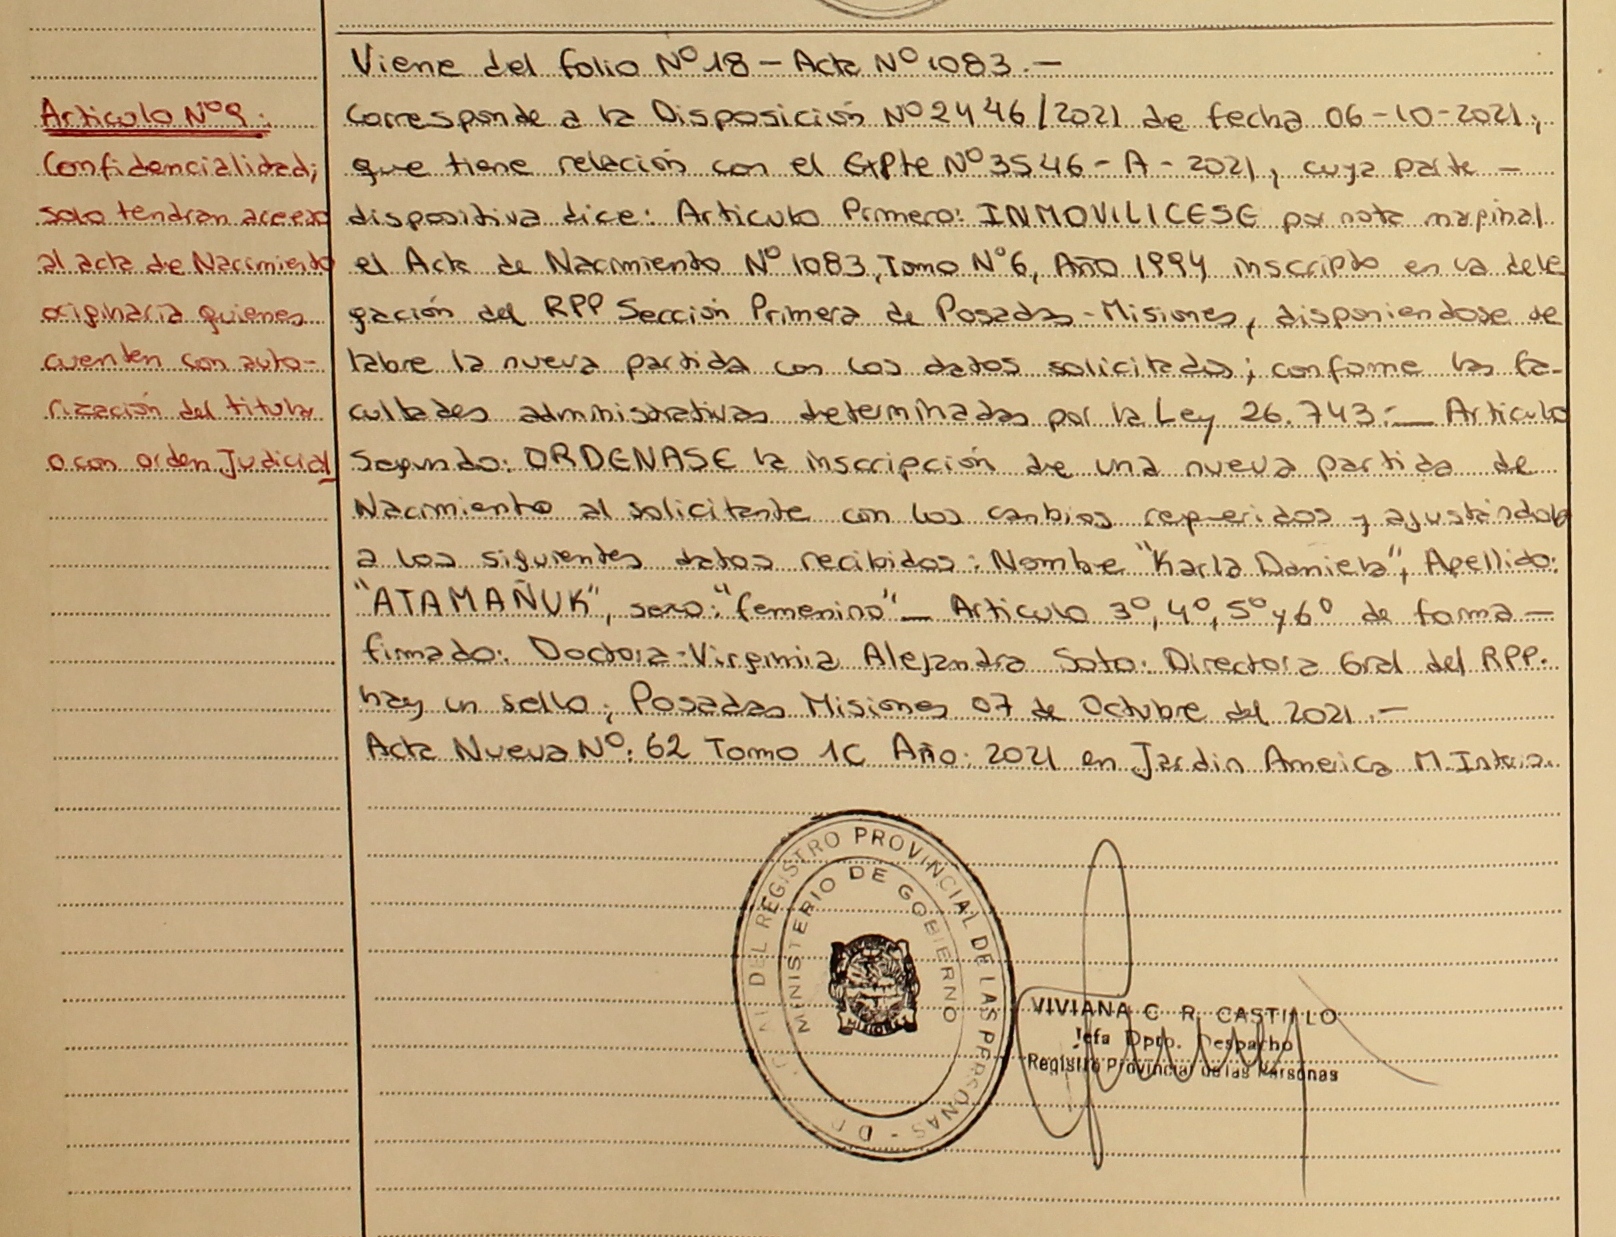 Viene del folio Nº 18 - Acta Nº 1083.-
Artículo Nº 9:
Confidencialidad;
solo tendrán acceso
al acta de Nacimiento
originaria quienes
cuenten con auto-
rización del titular
o con orden Judicial
Corresponde a la Disposición Nº 2446/2021 de fecha 06-10-2021,
que tiene relación con el Expte Nº 3546-A-2021, cuya parte -
dispositiva dice: Artículo Primero: INMOVILICESE por nota marginal
el Acta de Nacimiento Nº 1083, Tomo Nº 6, Año 1994 inscripto en la dele
gación del RPP Sección Primera de Posadas-Misiones, disponiendose se
labre la nueva partida con los datos solicitados; conforme las fa-
cultades administrativas determinadas por la Ley 26.743:- Artículo
Segundo: ORDENASE la inscripción de una nueva partida de
Nacimiento al solicitante con los cambios requeridos y ajustándolo
a los siguientes datos recibidos: Nombre "Karla Daniela", Apellido:
"ATAMAÑUK", sexo: "femenino"- Artículo 3º, 4º, 5º y 6º de forma -
firmado: Doctora-Virginia Alejandra Soto: Directora Gral del RPP.
hay un sello; Posadas Misiones 07 de Octubre del 2021.-
Acta Nueva Nº: 62 Tomo 1C Año: 2021 en Jardín America M.
DEL REGISTRO PROVINCIAL DE LAS PERSONAS -
MINISTERIO DE GOBIERNO
MISIONES
VIVIANA C. R. CASTILLO
Jefa Dpto. Despacho
Registro Provincial de las Personas